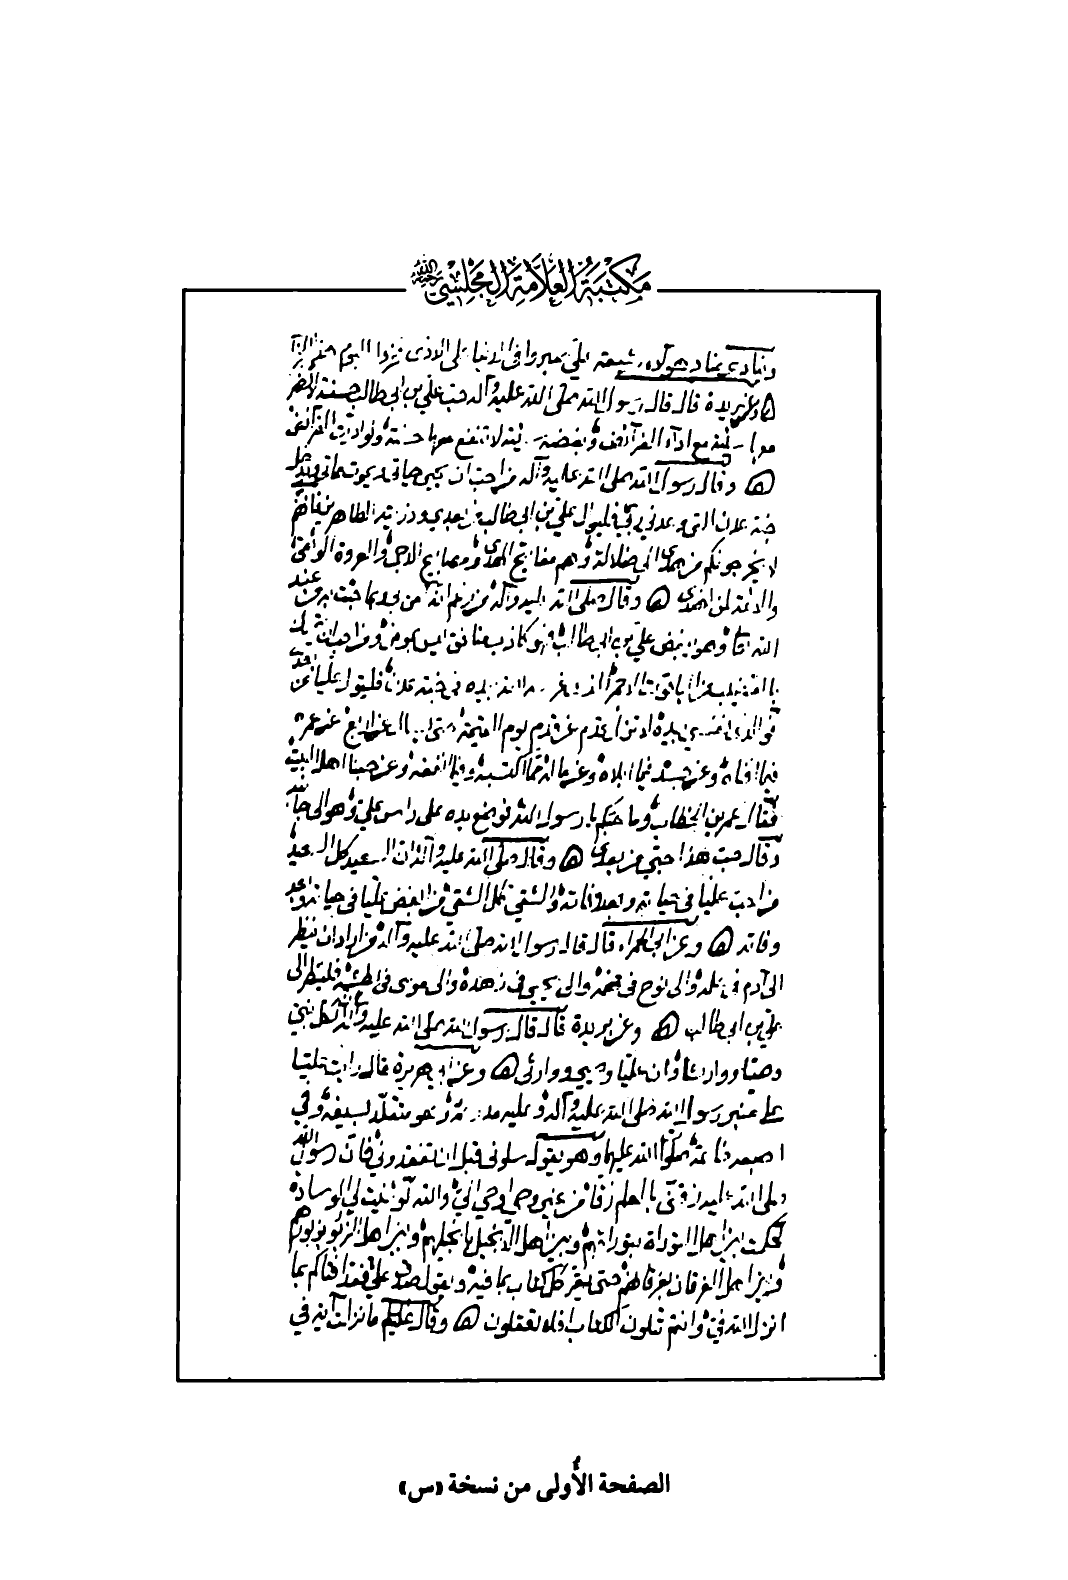 مكتبة العلامة المجلسي رحمه الله
وينادي مناد هولاء شيعة علي صبروا في الدنيا على الاذى نزدا اليوم
ه وعن بريدة قال قال رسول الله صلى الله عليه وآله حب علي بن ابي طالب حسنة لا تضر
معها سيئة مع اداء الفرائض وبغضه سيئة لا تنفع معها حسنة ولو اديت الفرائض
ه وقال رسول الله صلى الله عليه وآله من احب ان يحيى حياتي ويموت مماتي ويدخل
جنة عدن التي وعدني ربي فليتول علي بن ابي طالب من بعدي وذريته الطاهرين فانهم
لا يخرجونكم من هدى الى ضلالة وهم مفاتيح الهدى ومصابيح الدجى والعروة الوثقى
والائمة لمن اهتدى ه وقال صلى الله عليه وآله من زعم انه آمن بي وبما جئت به من عند
الله تعالى وهو يبغض علي بن ابي طالب فهو كاذب منافق ليس بمؤمن ومن احب ان
بالقضيب الياقوت الاحمر الذي غرسه الله بيده في جنة عدن فليتول عليا
فوالذي نفسي بيده لا تزل قدم عن قدم يوم القيمة حتى يسأل عن اربع عن عمره
فيما افناه وعن جسده فيما ابلاه وعن ماله مما اكتسبه وفيما انفقه وعن حبنا اهل البيت
فقال عمر بن الخطاب وما حبكم يا رسول الله فوضع يده على راس علي وهو الى جانبه
وقال حب هذا حبي من بعدي ه وقال صلى الله عليه وآله ان السعيد كل السعيد
من احب عليا في حياته وبعد وفاته والشقي كل الشقي من ابغض عليا في حياته وبعد
وفاته ه وعن ابي الحمراء قال قال رسول الله صلى الله عليه وآله من اراد ان ينظر
الى آدم في علمه والى نوح في فهمه والى يحيى في زهده والى موسى في بطشه فلينظر الى
علي بن ابي طالب ه وعن بريدة قال قال رسول الله صلى الله عليه وآله لكل نبي
وصيا ووارثا وان عليا وصيي ووارثي ه وعن ابي هريرة قال رايت عليا
على منبر رسول الله صلى الله عليه وآله وعليه مدرعة وهو متقلد لسيفه وفي
اصبعه خاتمه صلوات الله عليهما وهو يقول سلوني قبل ان تفقدوني فان رسول الله
صلى الله عليه زقني بالعلم زقا من غير وحي اوحي الي والله لو ثنيت لي الوسادة
لحكمت بين اهل التوراة بتوراتهم وبين اهل الانجيل بانجيلهم وبين اهل الزبور بزبورهم
وبين اهل الفرقان بفرقانهم حتى يقر كل كتاب بما فيه ويقول صدق علي فقد افتاكم بما
انزل الله في وانتم تتلون الكتاب افلا تعقلون ه وقال عليه السلم ما نزلت آية في
الصفحة الأولى من نسخة «س»